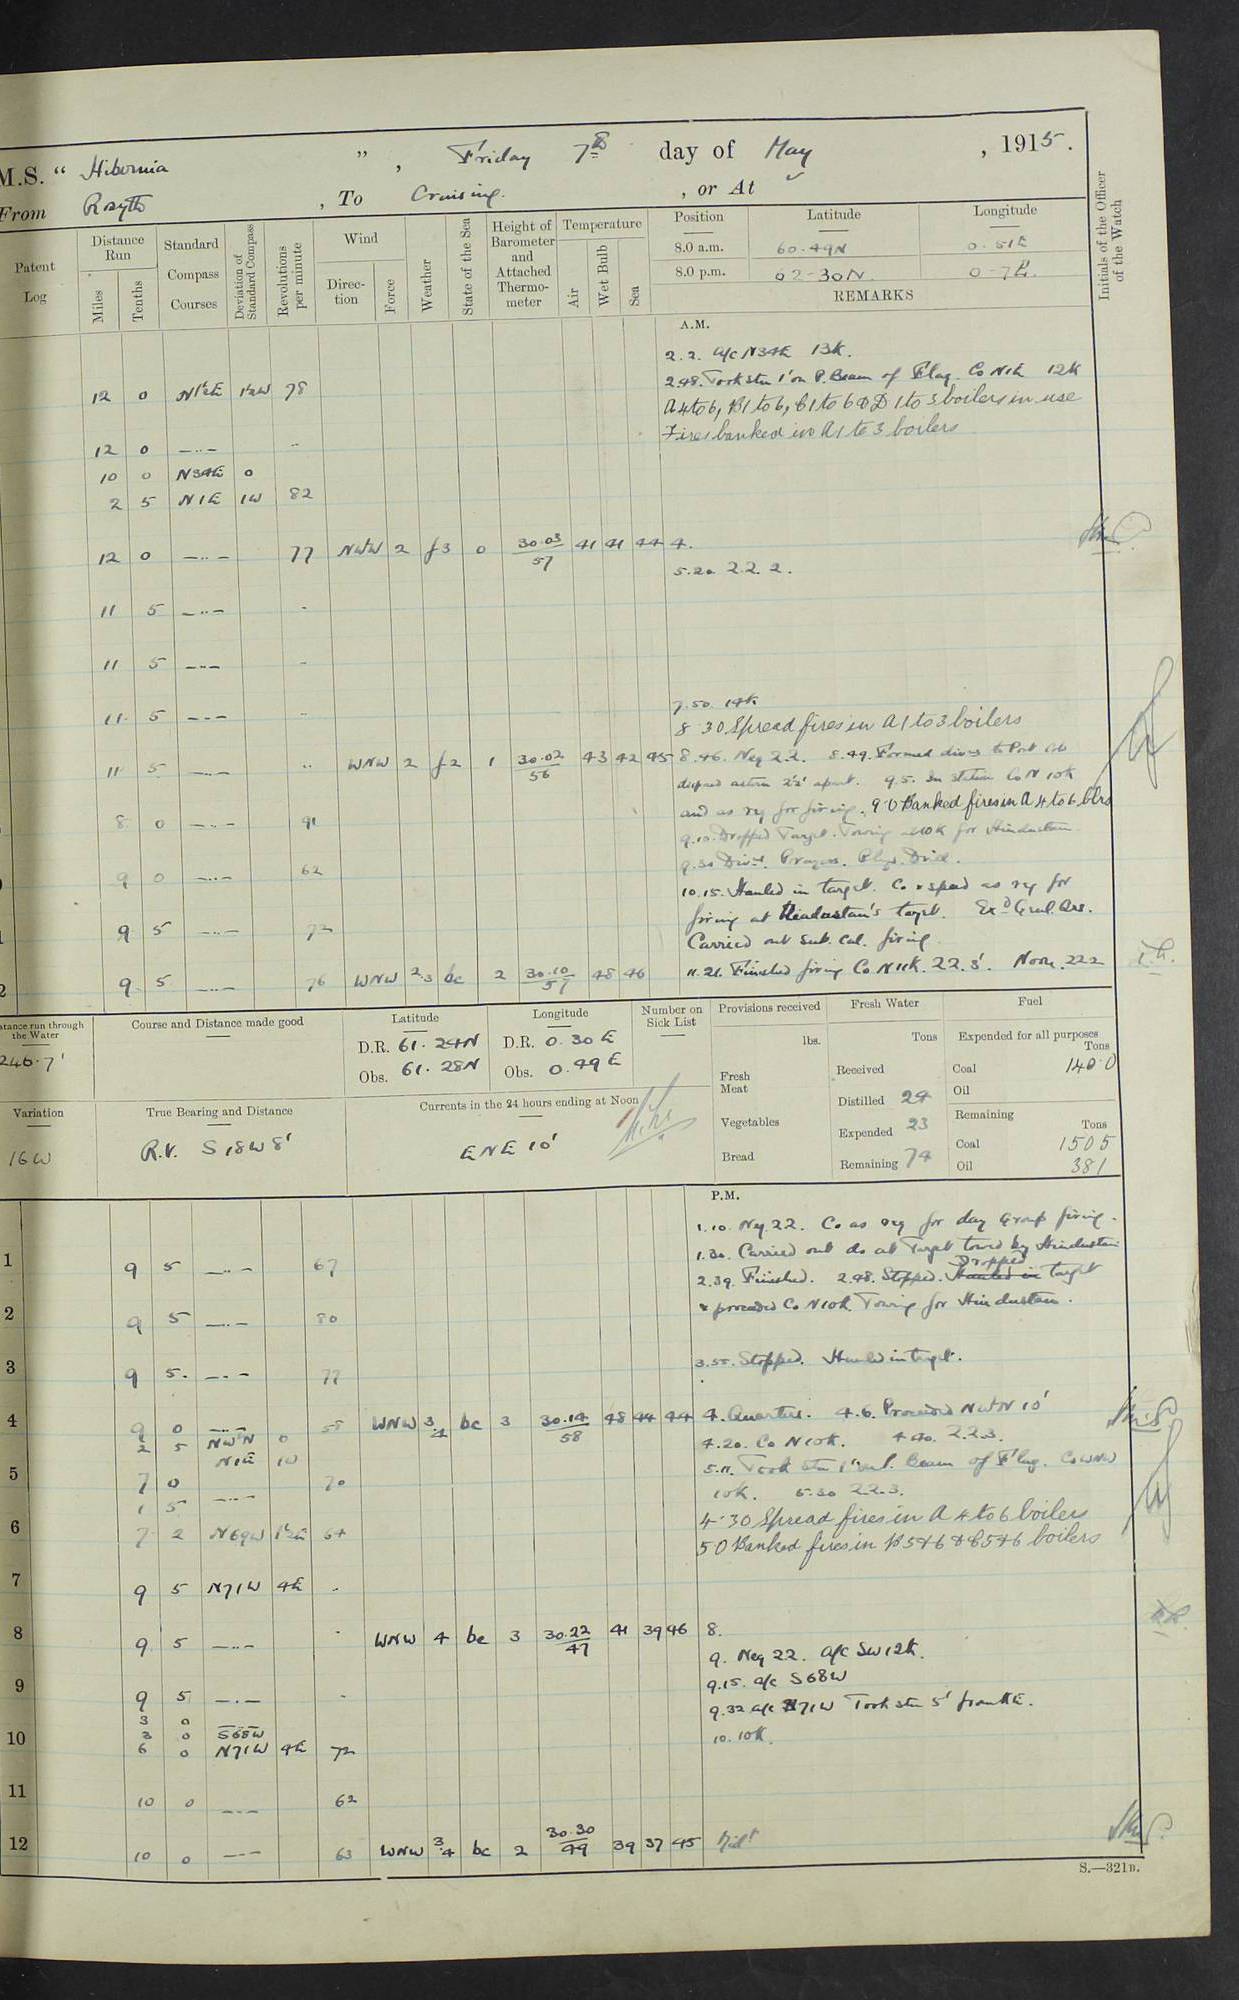 M.S. “ Hibernia ” , Friday 7th day of May , 1915.
From Rosyth , To Cruising. , or At
Patent Log
Distance Run
Miles
Tenths
Standard Compass Courses
Deviation of Standard Compass
Revolutions per minute
Wind
Direction
Force
Weather
State of the Sea
Height of Barometer and Attached Thermometer
Temperature
Air
Wet Bulb
Sea
Position Latitude Longitude
8.0 a.m. 60.49N 0.51E
8.0 p.m. 62-30N 0-7E.
REMARKS
Initials of the Officer of the Watch
A.M.
2.2. a/c N34E 13K.
12 0 N1½E 1½W 78
2.48. Took stn 1' on P. Beam of Flag. Co N1E 12K
A 4 to 6, B 1 to 6, C 1 to 6 & D 1 to 3 boilers in use
Fires banked in A 1 to 3 boilers
12 0 —..— ..
10 0 N34E 0
2 5 N1E 1W 82
12 0 —..— 77 NW'W 2 f3 0 30.03/57 41 41 44 4.
5.20 2.2. 2.
11 5 —..— ..
11 5 —..— ..
7.50. 14K
11 5 —..— ..
8.30 Spread fires in A 1 to 3 boilers
11 5 —..— .. WNW 2 f2 1 30.02/56 43 42 45 8.46. Neg 2.2. 8.49. Formed divns to Port
astern 2'.2' apart. 9.5. In station Co N 10K
8 0 —..— 91 and as req for firing. 9.0 Banked fires in A 4 to 6 blrs
9.10. Dropped Target. Towing at 10K for Hindustan
9 0 —..— 62 9.30 Divns. Prayers. Phys. Drill.
10.15. Hauled in target. Co & speed as req for
9 5 —..— 72 firing at Hindustan's target. Exd Genl. Qrs.
Carried out Sub. Cal. firing
9 5 —..— 76 WNW 2.3 bc 2 30.10/57 48 46 11.21. Finished firing Co N 11K. 22.3'. Noon. 222
Distance run through the Water
246.7'
Course and Distance made good
Latitude
D.R. 61.24N
Obs. 61.28N
Longitude
D.R. 0.30E
Obs. 0.49E
Number on Sick List
Provisions received
lbs.
Fresh Meat
Vegetables
Bread
Fresh Water
Tons
Received
Distilled 24
Expended 23
Remaining 74
Fuel
Expended for all purposes
Tons
Coal 140.0
Oil
Remaining
Tons
Coal 1505
Oil 381
Variation
16W
True Bearing and Distance
R.V. S 18W 8'
Currents in the 24 hours ending at Noon
ENE 10'
P.M.
1.10. Neg. 22. Co as req for day Group firing.
1 9 5 —..— 67 1.30. Carried out do at Target towed by Hindustan
2.39. Finished. 2.48. Stopped. Hauled in Dropped target
2 9 5 —..— 80 & proceeded Co N 10K. Towing for Hindustan.
3 9 5. —..— 77 3.55. Stopped. Hauled in target.
4 9 0 —..— 58 WNW 3.4 bc 3 30.14/58 48 44 44 4. Quarters. 4.6. Proceeded NW'N 10'
2 5 NW'N 0
4.20. Co N 10K. 4.40. 2.2.3.
5 7 0 N1E 1W 70 5.11. Took stn 1' Beam of Flag. Co WNW
1 5 —..— 10K. 5.30 2.2.3.
6 7 2 N69W 64 4.30 Spread fires in A 4 to 6 boilers
5.0 Banked fires in B 5 & 6 & C 5 & 6 boilers
7 9 5 N71W 4E ..
8 9 5 —..— .. WNW 4 bc 3 30.22/47 41 39 46 8.
9. Neg 22. a/c SW 12K.
9 9 5 —..— .. 9.15. a/c S68W
3 0
9.32 a/c N71W Took stn 5' from K.E.
10 3 0 S68W
6 0 N71W 4E 72 10. 10K.
11 10 0 —..— 62
12 10 0 —..— 63 WNW 3.4 bc 2 30.30/49 39 37 45 Midt
S.—321B.